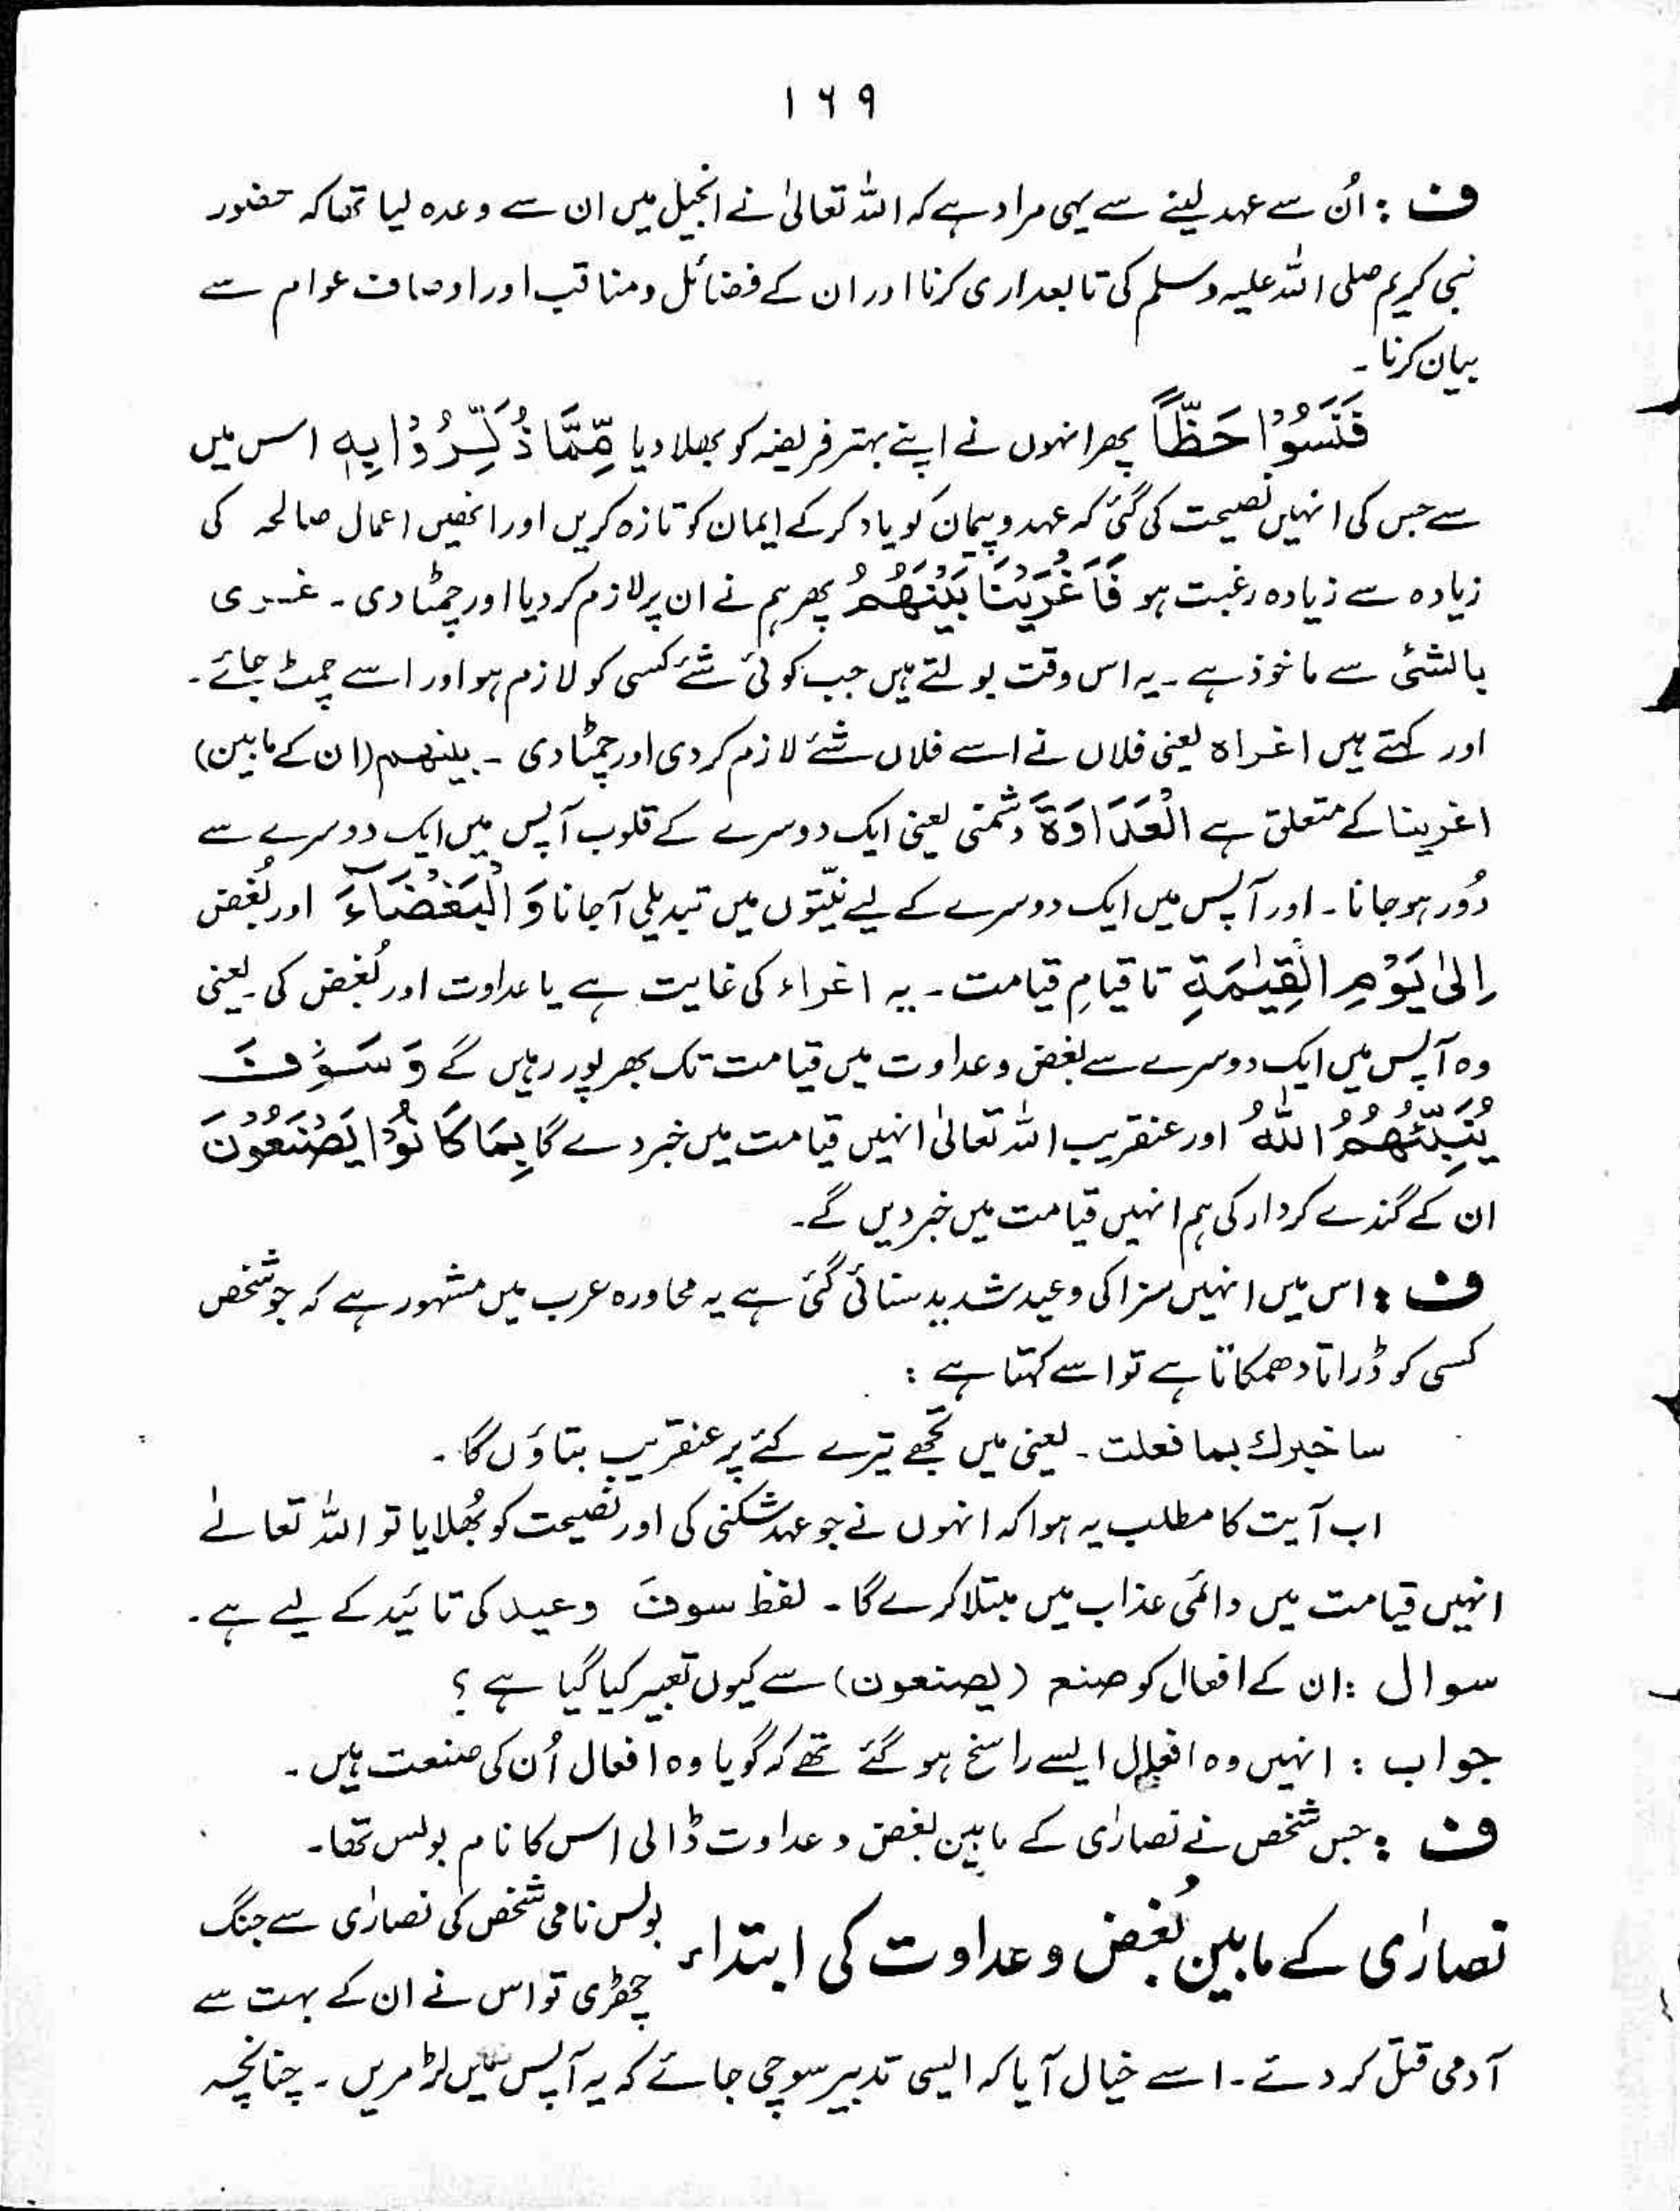 ۱۶۹
ف : اُن سے عہد لینے سے یہی مراد ہے کہ اللہ تعالیٰ نے انجیل میں ان سے وعدہ لیا تھا کہ حضور
نبی کریم صلی اللہ علیہ وسلم کی تابعداری کرنا اور ان کے فضائل و مناقب اور اوصاف عوام سے
بیان کرنا ۔
فَنَسُوْا حَظًّا پھر انہوں نے اپنے بہتر فریضہ کو بھلا دیا مِّمَّا ذُكِّرُوْا بِهٖ اس میں
سے جس کی انہیں نصیحت کی گئی کہ عہد و پیمان کو یاد کر کے ایمان کو تازہ کریں اور انھیں اعمال صالحہ کی
زیادہ سے زیادہ رغبت ہو فَاَغْرَيْنَا بَيْنَهُمُ پھر ہم نے ان پر لازم کر دیا اور چمٹا دی ۔ غری
بالشئی سے ماخوذ ہے ۔ یہ اس وقت بولتے ہیں جب کوئی شئے کسی کو لازم ہو اور اسے چمٹ جائے ۔
اور کہتے ہیں اغراہ یعنی فلاں نے اسے فلاں شئے لازم کر دی اور چمٹا دی ۔ بینھم (ان کے مابین)
اغرینا کے متعلق ہے الْعَدَاوَةَ دشمنی یعنی ایک دوسرے کے قلوب آپس میں ایک دوسرے سے
دُور ہو جانا ۔ اور آپس میں ایک دوسرے کے لیے نیّتوں میں تبدیلی آجانا وَ الْبَغْضَآءَ اور بُغض
اِلٰى يَوْمِ الْقِيٰمَةِ تا قیامِ قیامت ۔ یہ اغراء کی غایت ہے یا عداوت اور بُغض کی ۔ یعنی
وہ آپس میں ایک دوسرے سے بغض و عداوت میں قیامت تک بھرپور رہیں گے وَ سَوْفَ
يُنَبِّئُهُمُ اللّٰهُ اور عنقریب اللہ تعالیٰ انہیں قیامت میں خبر دے گا بِمَا كَانُوْا يَصْنَعُوْنَ
ان کے گندے کردار کی ہم انہیں قیامت میں خبر دیں گے ۔
ف : اس میں انہیں سزا کی وعید شدید سنائی گئی ہے یہ محاورہ عرب میں مشہور ہے کہ جو شخص
کسی کو ڈراتا دھمکاتا ہے تو اسے کہتا ہے :
ساخبرك بما فعلت ۔ یعنی میں تجھے تیرے کئے پر عنقریب بتاؤں گا ۔
اب آیت کا مطلب یہ ہوا کہ انہوں نے جو عہد شکنی کی اور نصیحت کو بُھلایا تو اللہ تعالےٰ
انہیں قیامت میں دائمی عذاب میں مبتلا کرے گا ۔ لفظ سوفَ وعید کی تائید کے لیے ہے ۔
سوال : ان کے افعال کو صنع (یصنعون) سے کیوں تعبیر کیا گیا ہے ؟
جواب : انہیں وہ افعال ایسے راسخ ہو گئے تھے کہ گویا وہ افعال اُن کی صنعت ہیں ۔
ف : جس شخص نے نصارٰی کے مابین بغض و عداوت ڈالی اس کا نام بولس تھا ۔
نصارٰی کے مابین بُغض و عداوت کی ابتداء
بولس نامی شخص کی نصارٰی سے جنگ
چھڑی تو اس نے ان کے بہت سے
آدمی قتل کر دئے ۔ اسے خیال آیا کہ ایسی تدبیر سوچی جائے کہ یہ آپس میں لڑ مریں ۔ چنانچہ